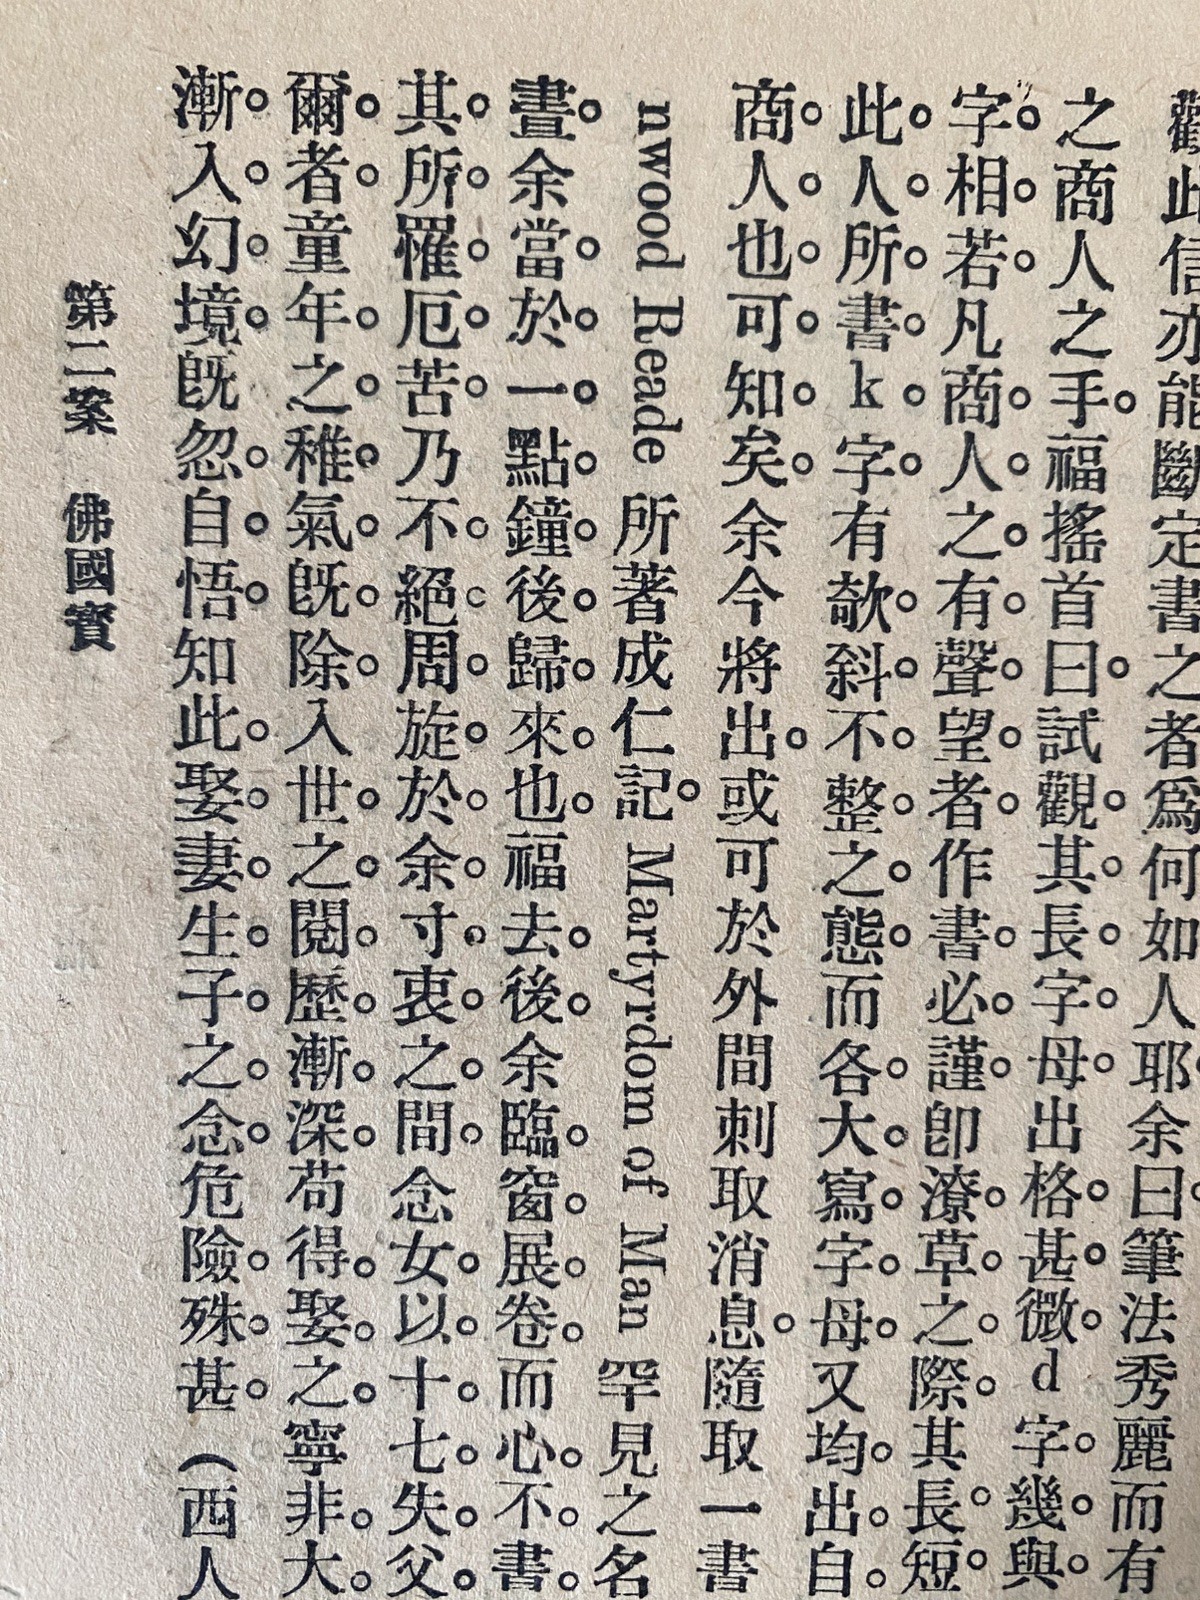 觀此信亦能斷定書之者爲何如人耶余曰筆法秀麗而有
之商人之手。福搖首曰。試觀其長字母出格甚微d字幾與
字相若凡商人之有聲望者作書必謹卽潦草之際其長短
此人所書k字有欹斜不整之態而各大寫字母又均出自
商人也可知矣。余今將出。或可於外間刺取消息。隨取一書
nwood Reade 所著成仁記。Martyrdom of Man 罕見之名
書余當於一點鐘後歸來也福去後余臨窗展卷而心不書
其所罹厄苦乃不絕周旋於余寸衷之間念女以十七失父
爾者童年之稚氣旣除入世之閱歷漸深苟得娶之寧非大
漸入幻境旣忽自悟知此娶妻生子之念危險殊甚（西人
第二案 佛國寶